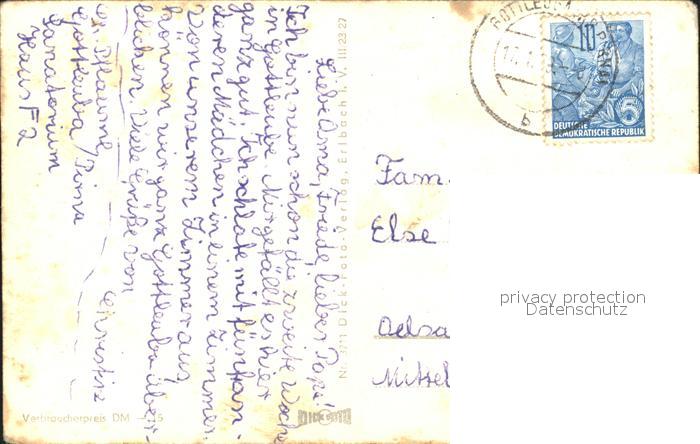 Liebe Oma, Friedel, lieber Papa!
Ich bin nun schon die zweite Woche
in Gottleuba. Mir gefällt es hier
ganz gut. Ich schlafe mit fünf an-
deren Mädchen in einem Zimmer.
Von unserem Zimmer aus
können wir ganz Gottleuba über-
blicken. Viele Grüße von
Christine
Pflaume
Gottleuba / Pirna
Sanatorium
Haus F2
Verbraucherpreis DM -.15
Nr. Dick-Foto-Verlag, Erlbach i. V. III 23 27
DICK FOTO
GOTTLEUBA
b
10
5
DEUTSCHE
DEMOKRATISCHE REPUBLIK
Fam.
Else
Oelsa
Mittel
privacy protection
Datenschutz